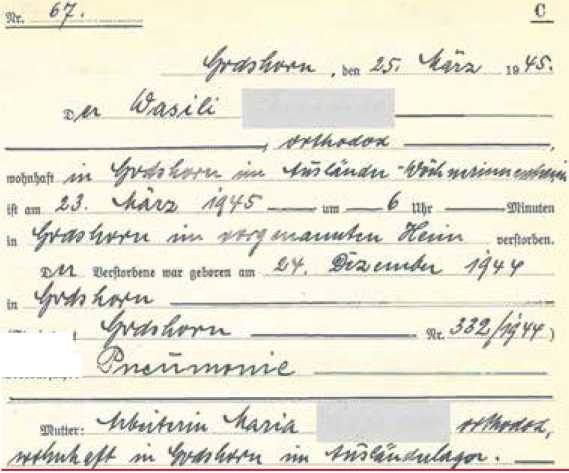 Nr. 67. C
Godshorn, den 25. März 1945.
Der Wasili
, orthodox,
wohnhaft in Godshorn im Ausländer-Wöchnerinnenheim
ist am 23. März 1945 um 6 Uhr Minuten
in Godshorn im vorgenannten Heim verstorben.
Der Verstorbene war geboren am 24. Dezember 1944
in Godshorn
Godshorn Nr. 332/1944)
Pneumonie
Mutter: Arbeiterin Maria orthodox,
wohnhaft in Godshorn im Ausländerlager.